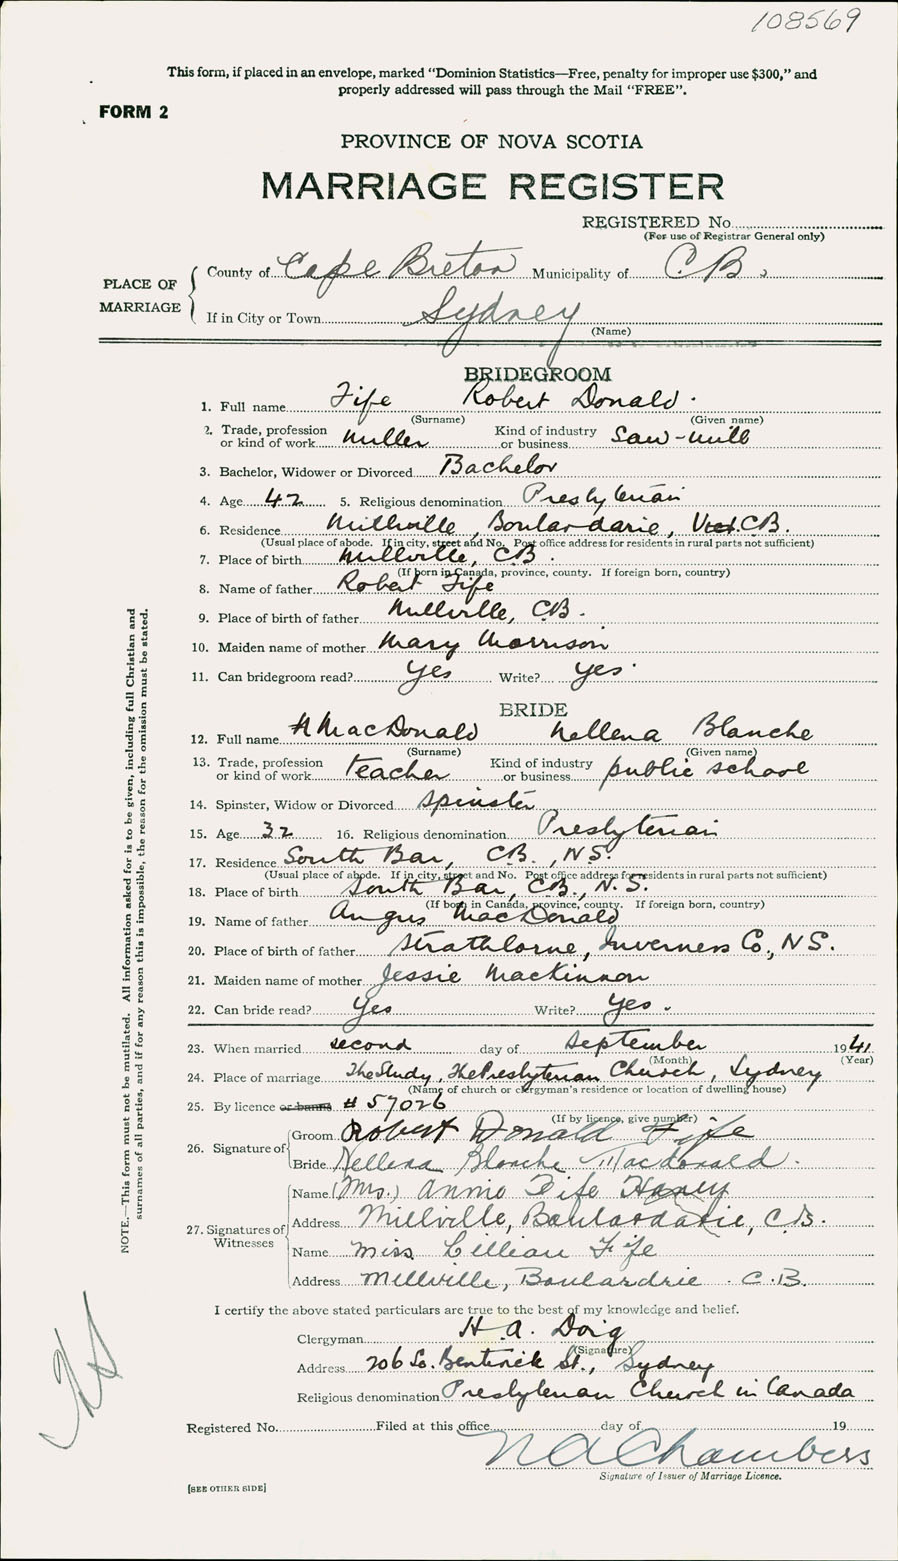 108569
This form, if placed in an envelope, marked "Dominion Statistics—Free, penalty for improper use $300," and
properly addressed will pass through the Mail "FREE".
FORM 2
PROVINCE OF NOVA SCOTIA
MARRIAGE REGISTER
REGISTERED No.
(For use of Registrar General only)
PLACE OF MARRIAGE
County of Cape Breton Municipality of C.B.
If in City or Town Sydney
(Name)
BRIDEGROOM
1. Full name Fife Robert Donald.
(Surname) (Given name)
2. Trade, profession or kind of work miller Kind of industry or business Saw-mill
3. Bachelor, Widower or Divorced Bachelor
4. Age 42 5. Religious denomination Presbyterian
6. Residence Millville, Boulardarie, C.B.
(Usual place of abode. If in city, street and No. Post office address for residents in rural parts not sufficient)
7. Place of birth Millville, C.B.
(If born in Canada, province, county. If foreign born, country)
8. Name of father Robert Fife
9. Place of birth of father Millville, C.B.
10. Maiden name of mother Mary Morrison
11. Can bridegroom read? Yes Write? Yes.
BRIDE
12. Full name MacDonald Nellena Blanche
(Surname) (Given name)
13. Trade, profession or kind of work teacher Kind of industry or business public school
14. Spinster, Widow or Divorced spinster
15. Age 32 16. Religious denomination Presbyterian
17. Residence South Bar, C.B., N.S.
(Usual place of abode. If in city, street and No. Post office address for residents in rural parts not sufficient)
18. Place of birth South Bar, C.B., N.S.
(If born in Canada, province, county. If foreign born, country)
19. Name of father Angus MacDonald
20. Place of birth of father Strathlorne, Inverness Co., N.S.
21. Maiden name of mother Jessie MacKinnon
22. Can bride read? Yes Write? Yes.
23. When married second day of September 1941
(Month) (Year)
24. Place of marriage The Study, The Presbyterian Church, Sydney
(Name of church or clergyman's residence or location of dwelling house)
25. By licence or banns # 57026
(If by licence, give number)
26. Signature of
Groom Robert Donald Fife
Bride Nellena Blanche Macdonald.
27. Signatures of Witnesses
Name (Mrs.) Annie Fife Haney
Address Millville, Boulardarie, C.B.
Name Miss Lillian Fife
Address Millville, Boulardrie C.B.
I certify the above stated particulars are true to the best of my knowledge and belief.
Clergyman H. A. Doig
(Signature)
Address 206 So. Bentinck St., Sydney
Religious denomination Presbyterian Church in Canada
Registered No. Filed at this office day of 19
N A Chambers
Signature of Issuer of Marriage Licence.
[SEE OTHER SIDE]
NOTE.—This form must not be mutilated. All information asked for is to be given, including full Christian and
surnames of all parties, and if for any reason this is impossible, the reason for the omission must be stated.